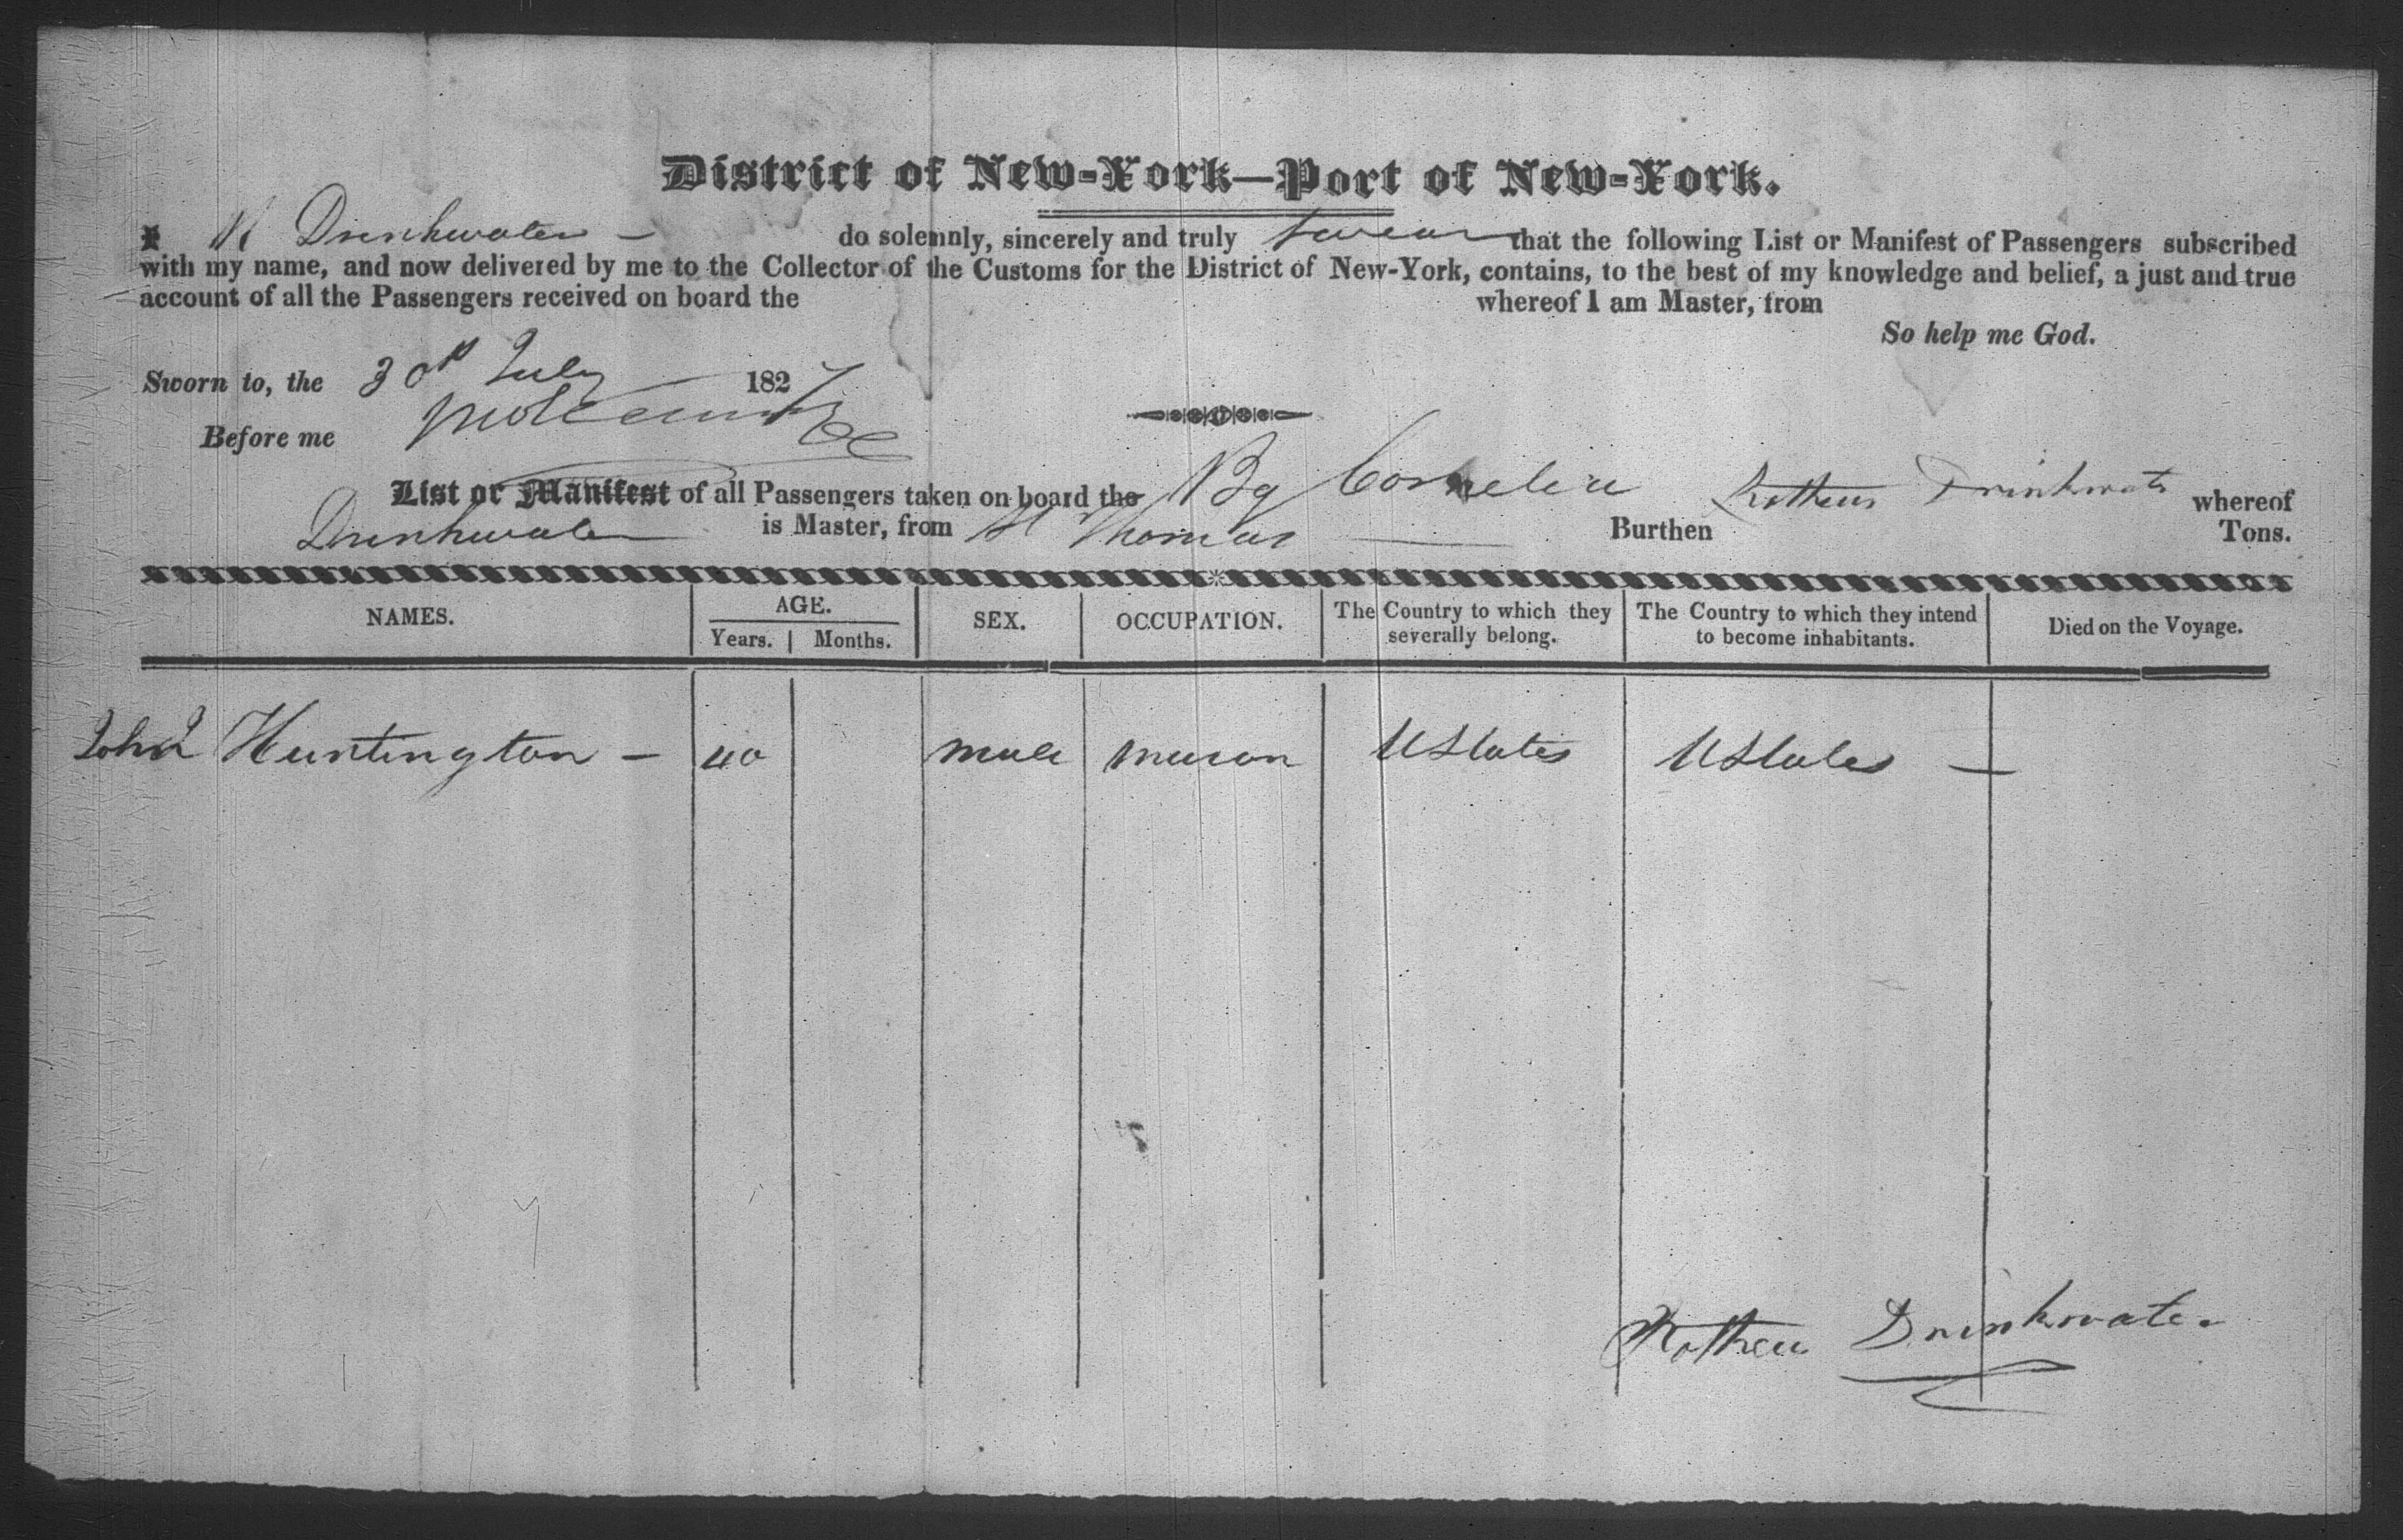 District of New-York—Port of New-York.
I R Drinkwater — do solemnly, sincerely and truly swear that the following List or Manifest of Passengers subscribed
with my name, and now delivered by me to the Collector of the Customs for the District of New-York, contains, to the best of my knowledge and belief, a just and true
account of all the Passengers received on board the whereof I am Master, from
So help me God.
Sworn to, the 30th July 1827
Before me
List or Manifest of all Passengers taken on board the Bg Cornelia Rotheus Drinkwater whereof
Drinkwater is Master, from St Thomas — Burthen Tons.
NAMES. AGE. Years. Months. SEX. OCCUPATION. The Country to which they severally belong. The Country to which they intend to become inhabitants. Died on the Voyage.
John Huntington — 40 male mason UStates UStates —
Drinkwater